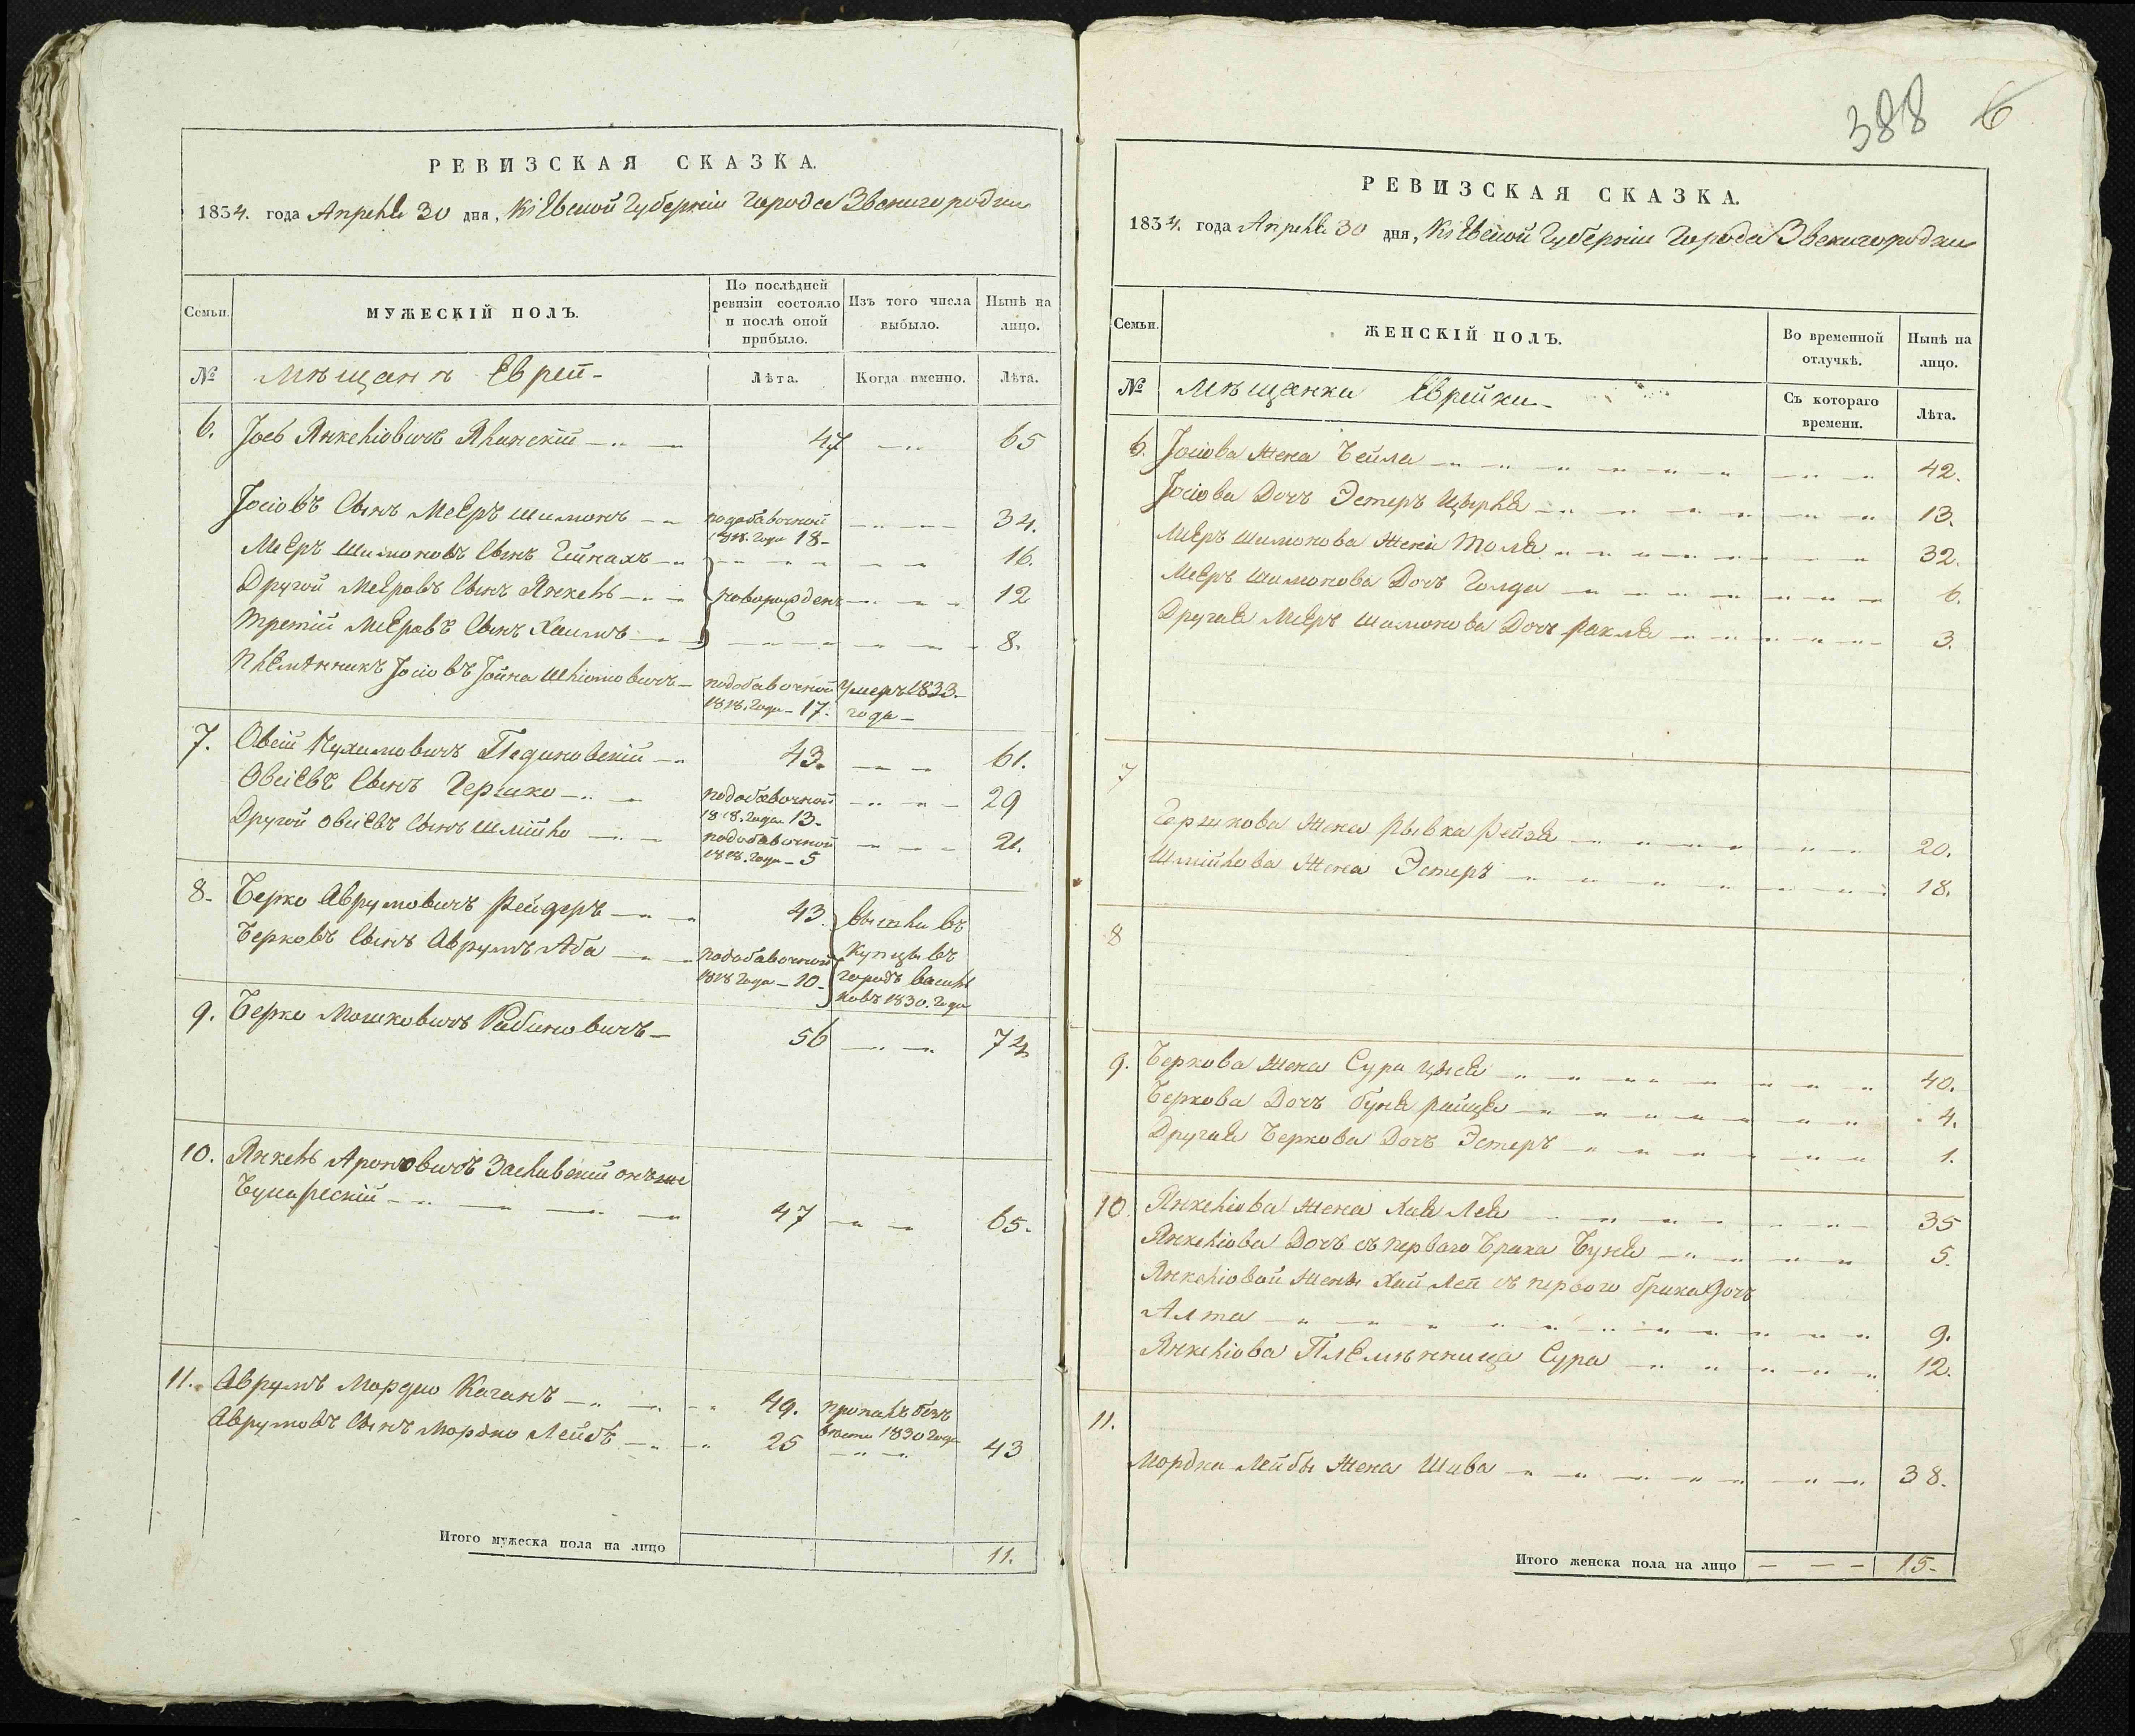 РЕВИЗСКАЯ СКАЗКА.
1834. года Апрѣля 30 дня, Кіевской Губерніи Города Звенигородки
Семьи. МУЖЕСКІЙ ПОЛЪ. По послѣдней ревизіи состояло и послѣ оной прибыло. Изъ того числа выбыло. Нынѣ на лицо.
№ Мѣщанъ Евреи Лѣта. Когда именно. Лѣта.
6. Іось Янкеліовичъ 47 65
Іосіовъ Сынъ Мееръ Шимонъ подобавочной 1818. Года 18 34.
Мееръ Шимоновъ Сынъ 16.
Другой Меровъ Сынъ Янкель новорожден 12
Третій Меровъ Сынъ Хаимъ 8.
Племянникъ Іосіовъ Іойна Шліомовичъ подобавочной 1818. Года 17. Умеръ 1833. года
7. Овсій Нухимовичъ 43. 61.
Овсіевъ Сынъ Гершко подобавочной 1818. Года 13. 29
Другой Овсіевъ Сынъ Шмійло подобавочной 1818. Года 5 21.
8. Берко Аврумовичъ Рейдеръ 43 вышли въ
Берковъ Сынъ Аврумъ Аба подобавочной 1818 Года 10 Купцы въ городъ Васильковъ 1830. Года
9. Берко Мошковичъ Рабиновичъ 56 74
10. Янкель Ароновичъ Заславскій онъже
47 65.
11. Аврумъ Мордко Каганъ 49. пропалъ безъ вѣсти 1830 Года
Аврумовъ Сынъ Мордко Лейбъ 25 43
Итого мужеска пола на лицо 11.
388 6
РЕВИЗСКАЯ СКАЗКА.
1834. года Апрѣля 30 дня, Кіевской Губерніи Города Звенигородки
Семьи. ЖЕНСКІЙ ПОЛЪ. Во временной отлучкѣ. Нынѣ на лицо.
№ Мѣщанки Еврейки Съ котораго времени. Лѣта.
6. Іосіова Жена Бейла 42.
Іосіова Дочъ Эстеръ Цырля 13.
Меръ Шимонова Жена 32.
Меръ Шимонова Дочъ Голда 6.
Другая Меръ Шимонова Дочъ Рахля 3.
7
Гершкова Жена Рывка Рейзя 20.
Шмійлова Жена Эстеръ 18.
8
9. Беркова Жена Сура 40.
Беркова Дочъ Буня 4.
Другая Беркова Дочъ Эстеръ 1.
10. Янкеліова Жена Хая Лея 35
Янкеліова Дочъ съ перваго Брака Буня 5.
Янкеліовой Жены Хаи Леи съ первого брака Дочъ
Алта 9.
Янкеліова Племѣнница Сура 12.
11.
Мордка Лейбы Жена Шива 38.
Итого женска пола на лицо 15.